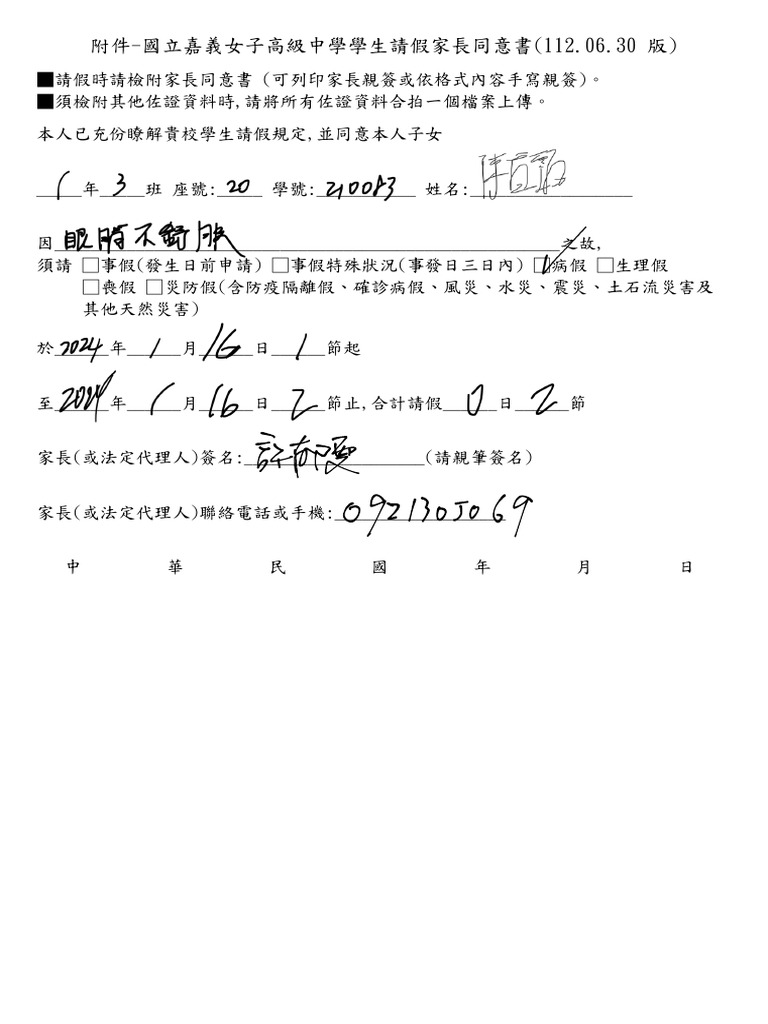 附件-國立嘉義女子高級中學學生請假家長同意書(112.06.30 版)
■請假時請檢附家長同意書 (可列印家長親簽或依格式內容手寫親簽)。
■須檢附其他佐證資料時,請將所有佐證資料合拍一個檔案上傳。
本人已充份瞭解貴校學生請假規定,並同意本人子女
1年3班 座號:20 學號:210083 姓名:陳
因眼睛不舒服之故,
須請 □事假(發生日前申請) □事假特殊狀況(事發日三日內) ☑病假 □生理假
□喪假 □災防假(含防疫隔離假、確診病假、風災、水災、震災、土石流災害及
其他天然災害)
於2024年1月16日1節起
至2024年1月16日2節止,合計請假0日2節
家長(或法定代理人)簽名:許郁(請親筆簽名)
家長(或法定代理人)聯絡電話或手機:0921305069
中 華 民 國 年 月 日